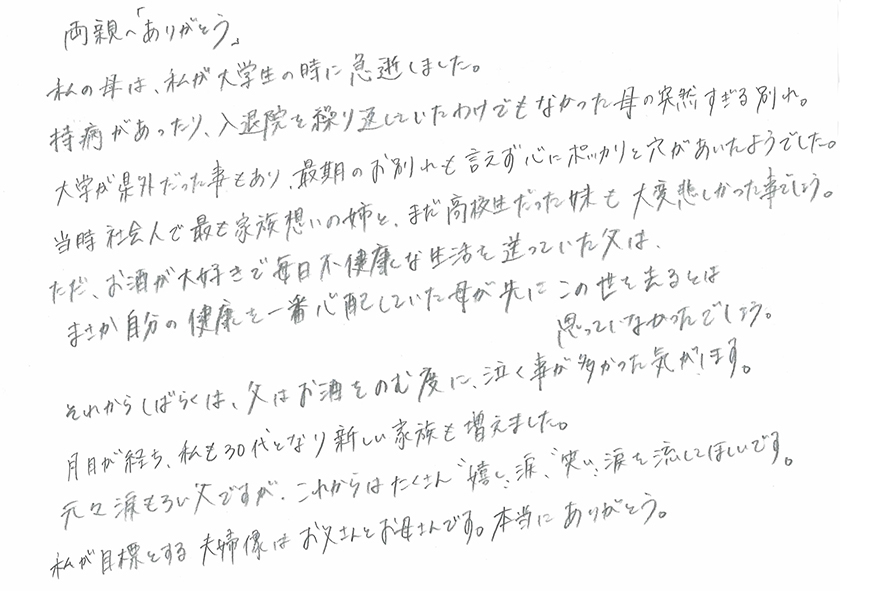 両親へ「ありがとう」
私の母は、私が大学生の時に急逝しました。
持病があったり、入退院を繰り返していたわけでもなかった母の突然すぎる別れ。
大学が県外だった事もあり、最期のお別れも言えず心にポッカリと穴があいたようでした。
当時社会人で最も家族想いの姉と、まだ高校生だった妹も大変悲しかった事でしょう。
ただ、お酒が大好きで毎日不健康な生活を送っていた父は、
まさか自分の健康を一番心配していた母が先にこの世を去るとは
思っていなかったでしょう。
それからしばらくは、父はお酒をのむ度に、泣く事が多かった気がします。
月日が経ち、私も30代となり新しい家族も増えました。
元々涙もろい父ですが、これからはたくさん〝嬉し涙〟〝笑い涙〟を流してほしいです。
私が目標とする夫婦像はお父さんとお母さんです。本当にありがとう。